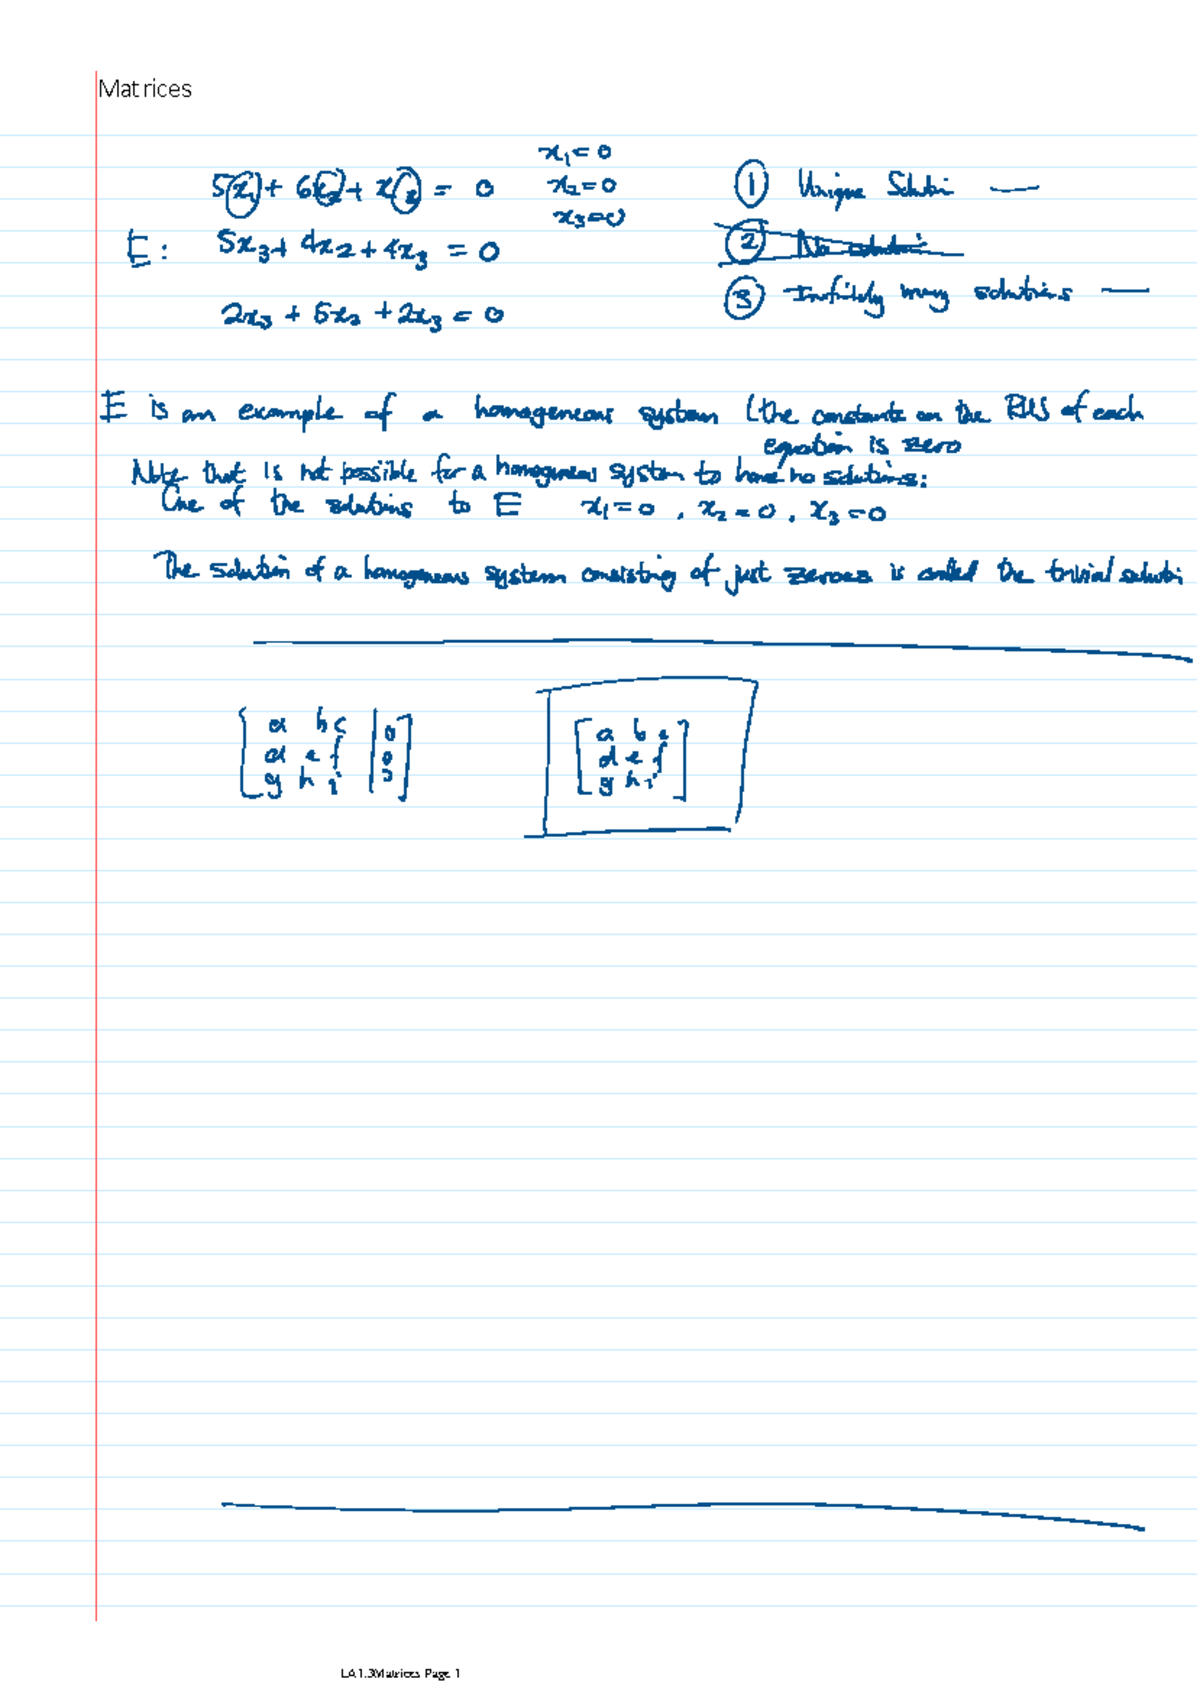 Matrices
x₁ = 0
5x₁ + 6x₂ + x₃ = 0
x₂ = 0
① Unique Soluti
x₃ = 0
E: 5x₃ + 4x₂ + 4x₃ = 0
② No soluti
③ Infinitely many solutions
2x₃ + 5x₂ + 2x₃ = 0
E is an example of a homogeneous system (the constants on the RHS of each
equation is zero
Note that is not possible for a homogeneous system to have no solutions:
One of the solutions to E x₁ = 0, x₂ = 0, x₃ = 0
The solution of a homogeneous system consisting of just zeroes is called the trivial soluti
a b c | 0
d e f | 0
g h i | 0
a b c
d e f
g h i
LA1.3Matrices Page 1